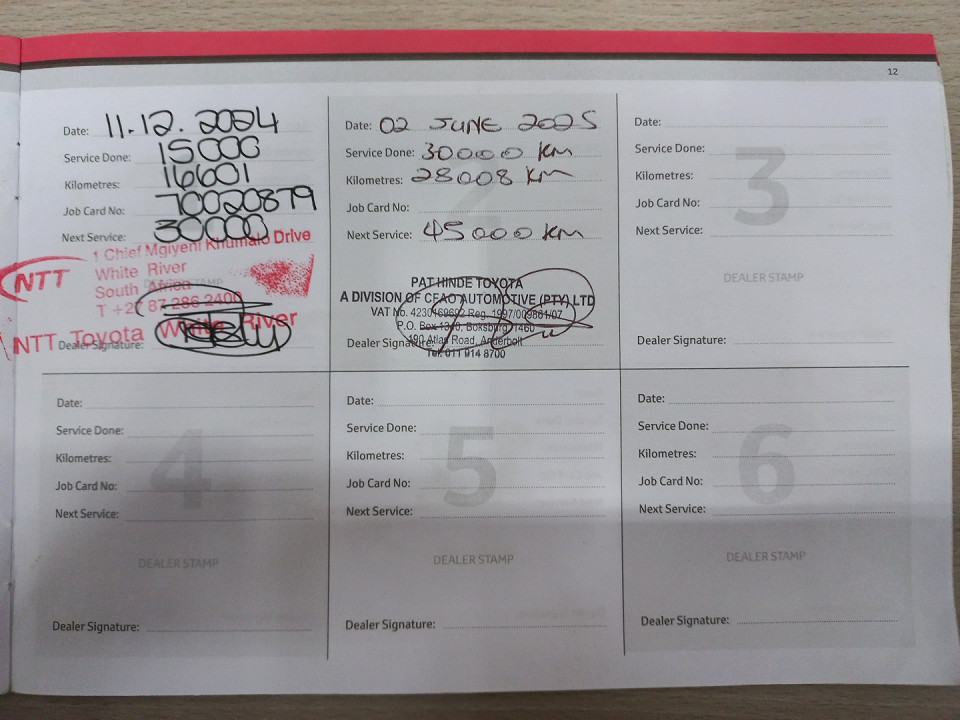 12
Date: 11.12.2024
Service Done: 15000
Kilometres: 16601
Job Card No: 70020879
Next Service: 30000
1 Chief Mgiyeni Khumalo Drive
NTT White River
South Africa
T +27 87 286 2400
NTT Toyota White River
Dealer Signature:
Date: 02 JUNE 2025
Service Done: 30000 KM
Kilometres: 28008 KM
Job Card No:
Next Service: 45000 KM
2
PAT HINDE TOYOTA
A DIVISION OF CFAO AUTOMOTIVE (PTY) LTD
VAT No. 4230169602 Reg. 1997/009861/07
P.O. Box Boksburg 1460
190 Atlas Road, Anderbolt
Dealer Signature:
Tel: 011 914 8700
Date:
Service Done:
Kilometres:
Job Card No:
Next Service:
3
DEALER STAMP
Dealer Signature:
Date:
Service Done:
Kilometres:
Job Card No:
Next Service:
4
DEALER STAMP
Dealer Signature:
Date:
Service Done:
Kilometres:
Job Card No:
Next Service:
5
DEALER STAMP
Dealer Signature:
Date:
Service Done:
Kilometres:
Job Card No:
Next Service:
6
DEALER STAMP
Dealer Signature: